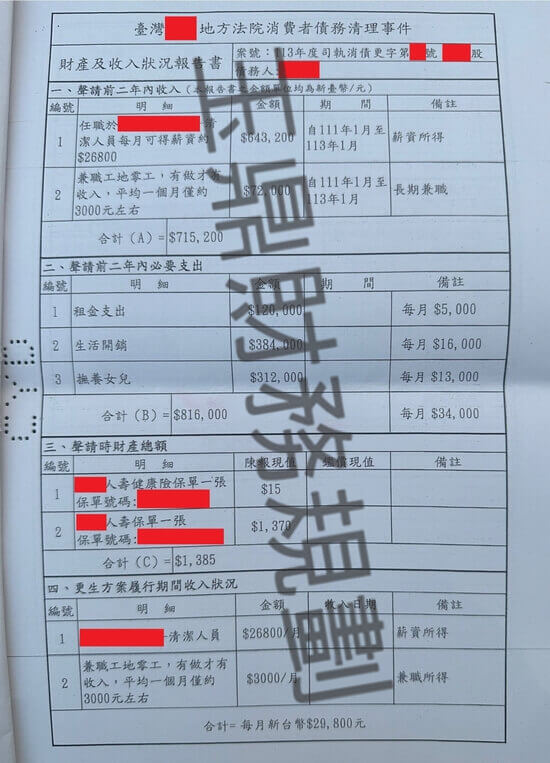 臺灣 地方法院消費者債務清理事件
財產及收入狀況報告書
案號：113年度司執消債更字第 號 股
債務人
一、聲請前二年內收入（本報告書之金額單位均為新臺幣/元）
編號 明 細 金額 期 間 備註
1 任職於 清潔人員每月可得薪資約$26800 $643,200 自111年1月至113年1月 薪資所得
2 兼職工地零工，有做才有收入，平均一個月僅約3000元左右 $72,000 自111年1月至113年1月 長期兼職
合計（A）= $715,200
二、聲請前二年內必要支出
編號 明 細 金額 期 間 備註
1 租金支出 $120,000 每月 $5,000
2 生活開銷 $384,000 每月 $16,000
3 撫養女兒 $312,000 每月 $13,000
合計（B）= $816,000 每月 $34,000
三、聲請時財產總額
編號 明 細 陳報現值 鑑價現值 備註
1 人壽健康險保單一張
保單號碼: $15
2 人壽保單一張
保單號碼: $1,370
合計（C）= $1,385
四、更生方案履行期間收入狀況
編號 明 細 金額 收入日期 備註
1 清潔人員 $26800/月 薪資所得
2 兼職工地零工，有做才有收入，平均一個月僅約3000元左右 $3000/月 兼職所得
合計= 每月新台幣$29,800元
玉鼎財務規劃